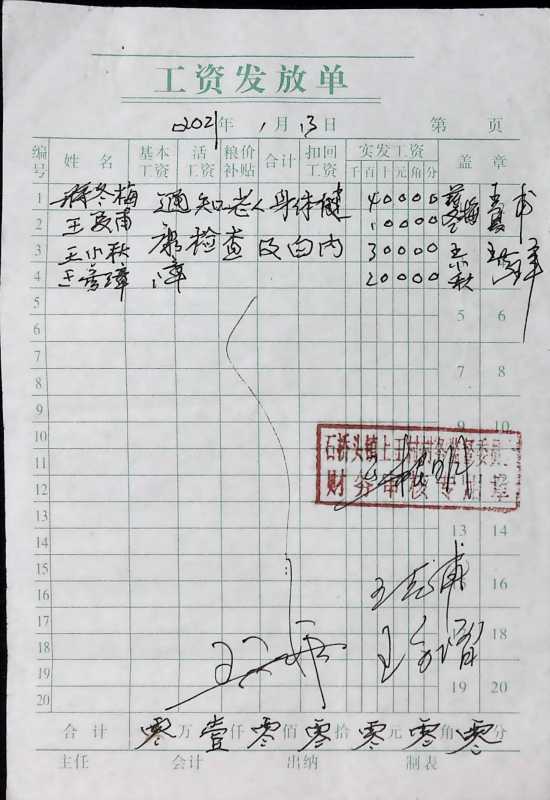 工资发放单
2021年 1月 13日 第 页
编号 姓名 基本工资 活工资 粮价补贴 合计 扣回工资 实发工资 盖章
千 百 十 元 角 分
1 薛冬梅 通知老人身体健 40000
2 王夏甫 康检查及白内 10000
3 王小秋 障 30000
4 20000
5 5 6
6
7 7 8
8
9 9 10
10
11
12
13 13 14
14
15
16 16
17
18 18
19 19 20
20
石桥头镇上王村村务监督委员
财务审核专用章
合计 零万壹仟零佰零拾零元零角零分
主任 会计 出纳 制表